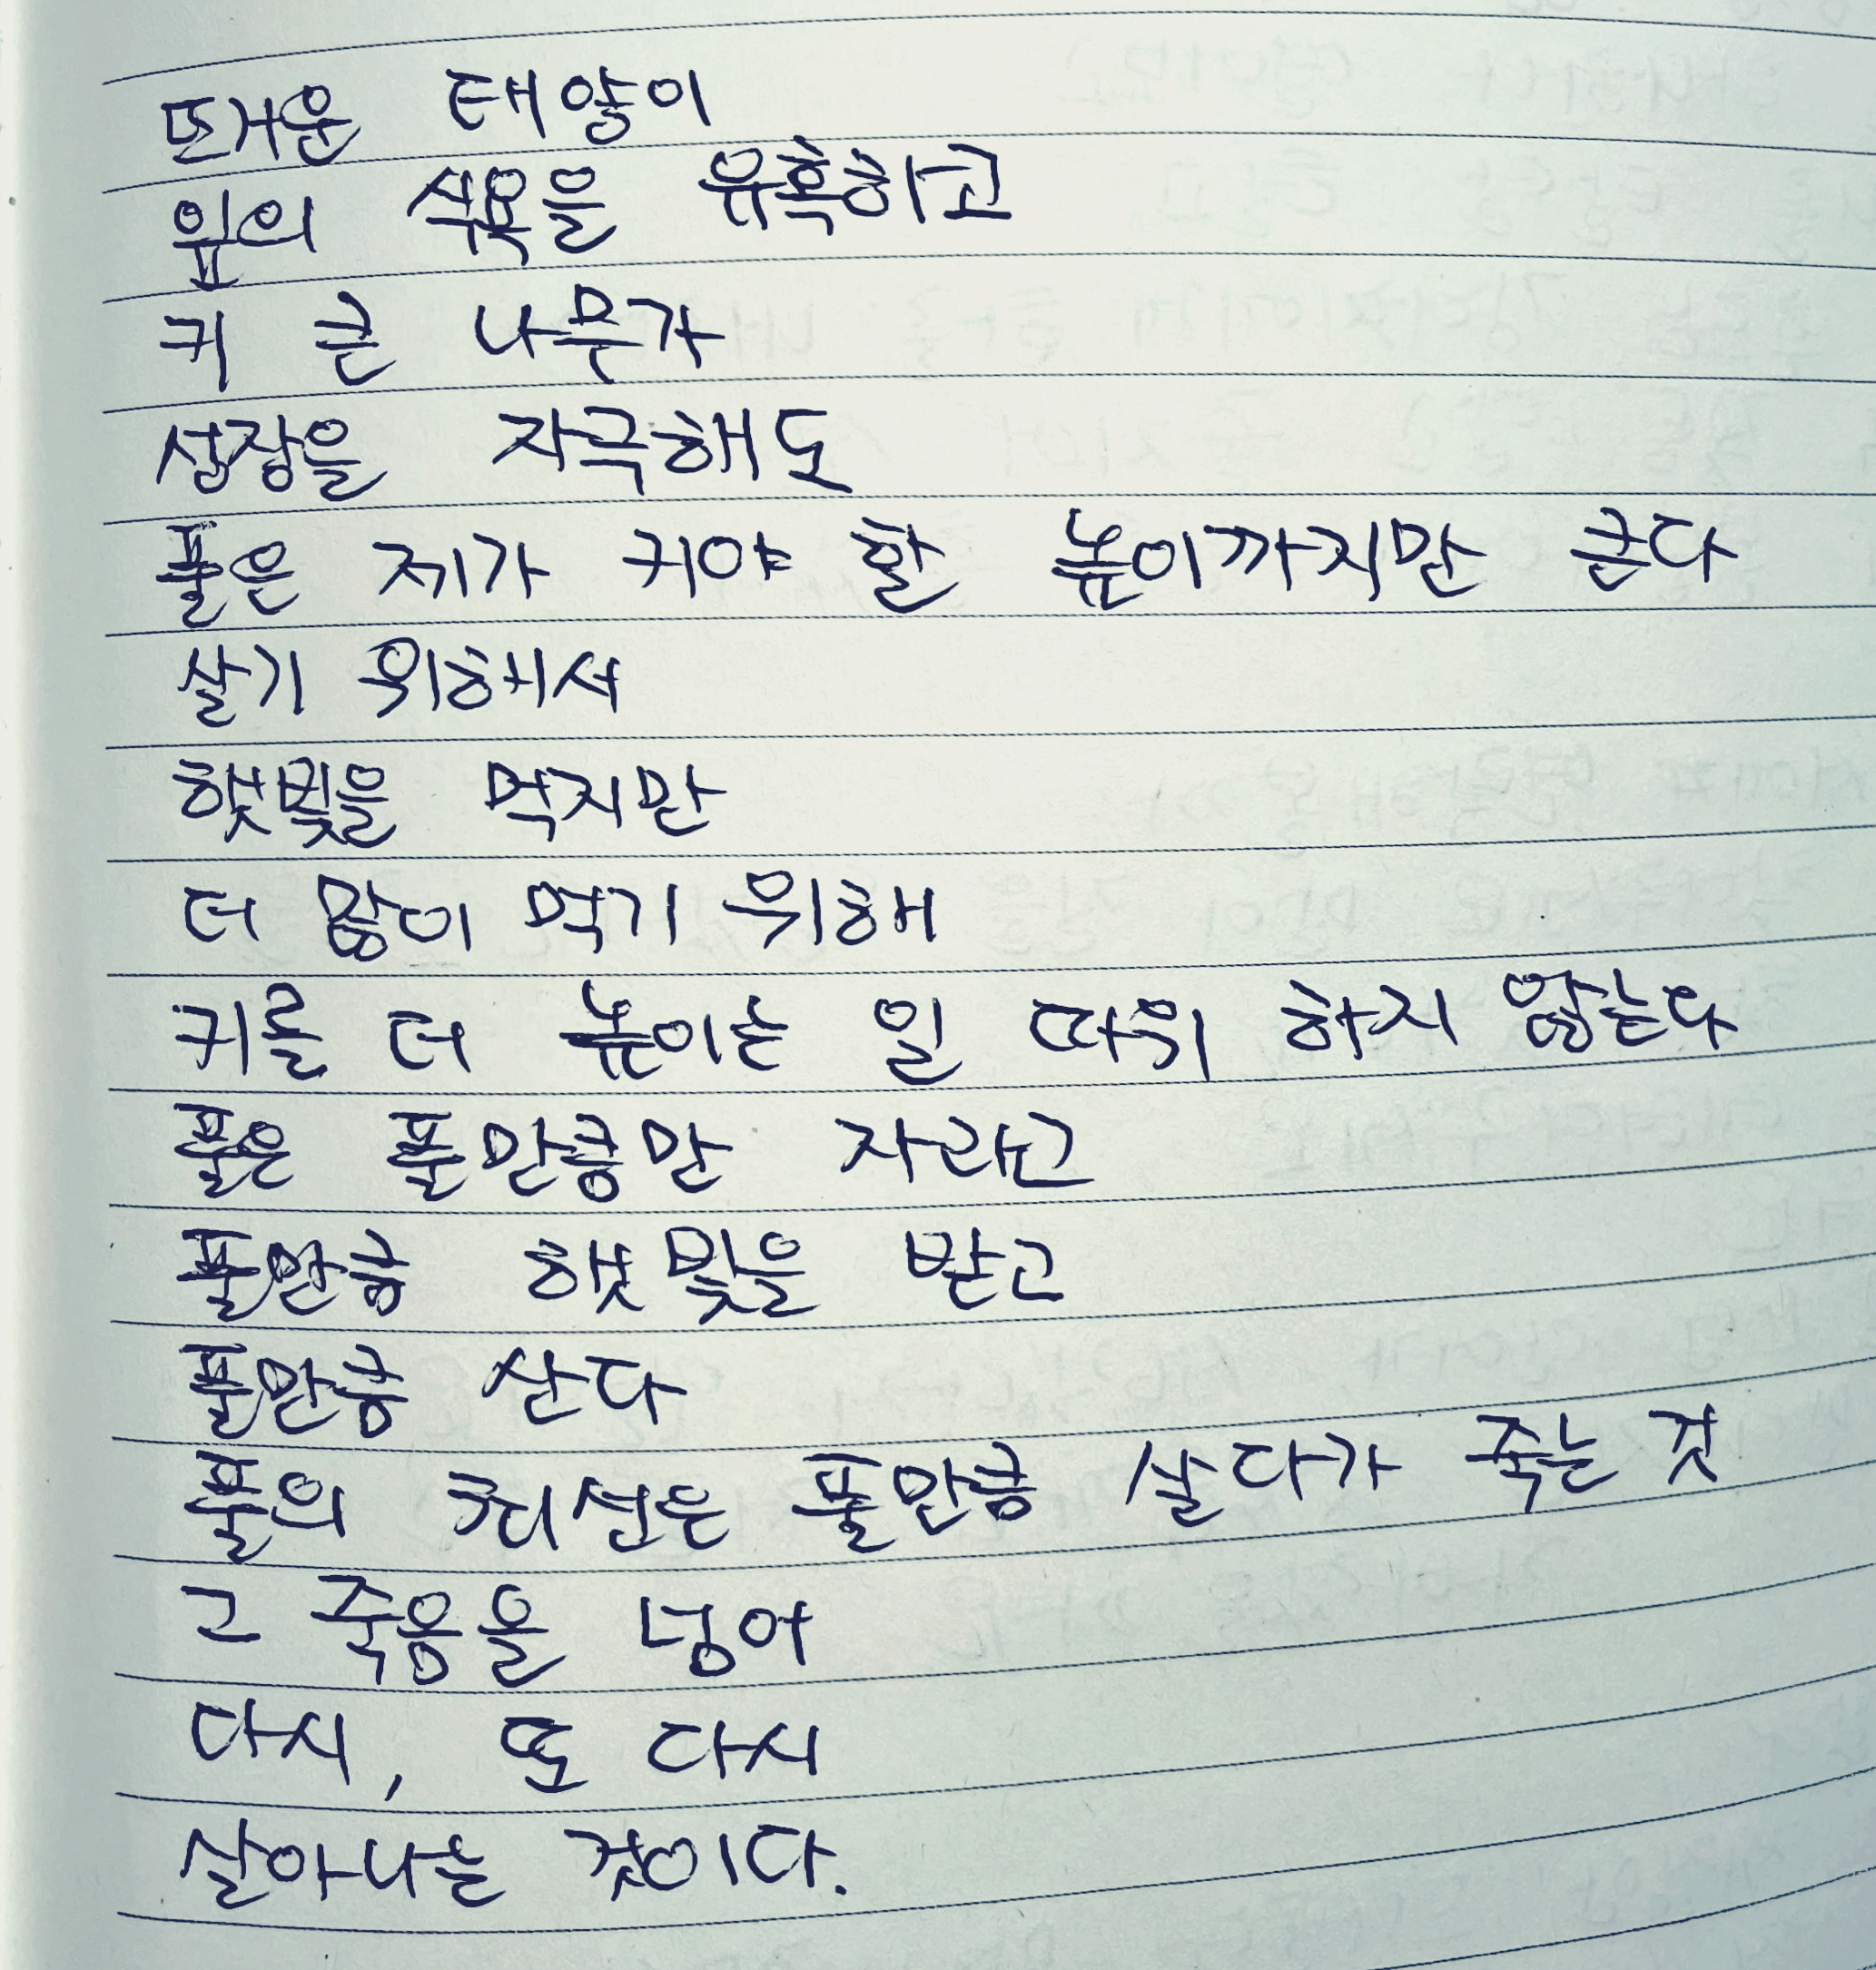 뜨거운 태양이
잎의 식욕을 유혹하고
키 큰 나무가
성장을 자극해도
풀은 제가 커야 할 높이까지만 큰다
살기 위해서
햇빛을 먹지만
더 많이 먹기 위해
키를 더 높이는 일 따위 하지 않는다
풀은 풀만큼만 자라고
풀만큼 햇빛을 받고
풀만큼 산다
풀의 최선은 풀만큼 살다가 죽는 것
그 죽음을 넘어
다시, 또 다시
살아나는 것이다.